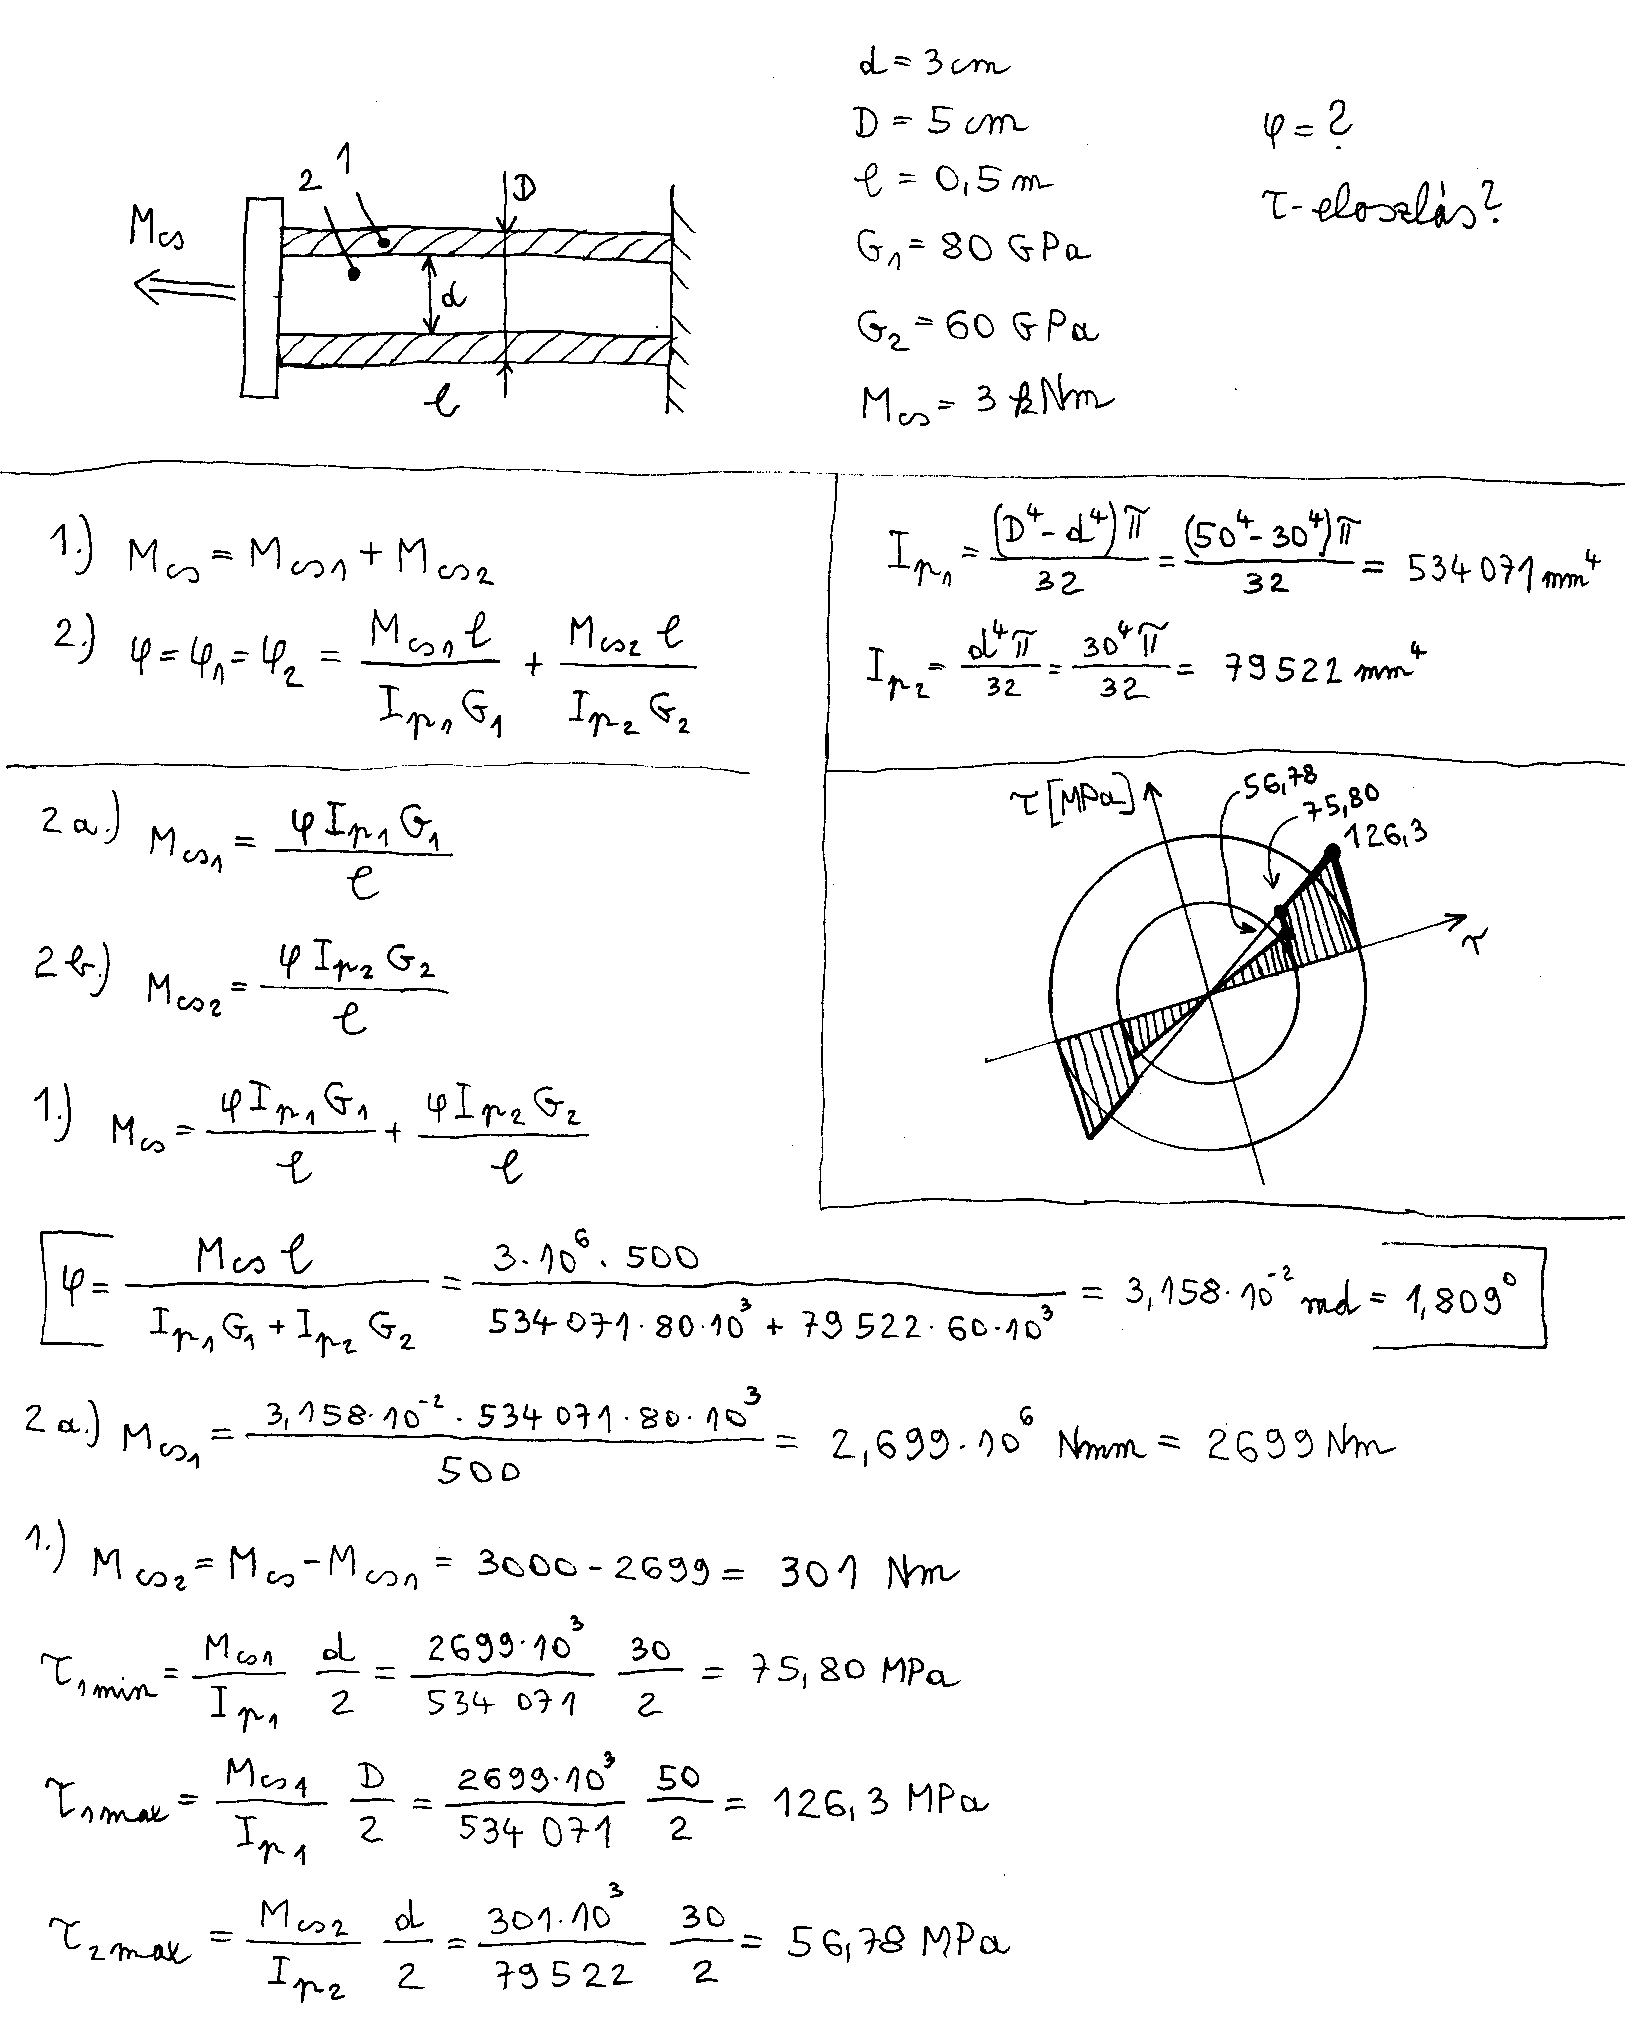 d = 3 cm
D = 5 cm
ℓ = 0,5 m
G₁ = 80 GPa
G₂ = 60 GPa
M_cs = 3 kNm
φ = ?
τ-eloszlás?
1
2
D
M_cs
d
ℓ
1.) M_cs = M_cs1 + M_cs2
2.) φ = φ₁ = φ₂ = M_cs1 ℓ / I_p1 G₁ + M_cs2 ℓ / I_p2 G₂
I_p1 = (D⁴ - d⁴)π / 32 = (50⁴ - 30⁴)π / 32 = 534 071 mm⁴
I_p2 = d⁴π / 32 = 30⁴π / 32 = 79 522 mm⁴
2 a.) M_cs1 = φ I_p1 G₁ / ℓ
2 b.) M_cs2 = φ I_p2 G₂ / ℓ
1.) M_cs = φ I_p1 G₁ / ℓ + φ I_p2 G₂ / ℓ
τ [MPa]
56,78
75,80
126,3
r
φ = M_cs ℓ / (I_p1 G₁ + I_p2 G₂) = 3·10⁶ · 500 / (534 071 · 80 · 10³ + 79 522 · 60 · 10³) = 3,158 · 10⁻² rad = 1,809°
2 a.) M_cs1 = 3,158 · 10⁻² · 534 071 · 80 · 10³ / 500 = 2,699 · 10⁶ Nmm = 2699 Nm
1.) M_cs2 = M_cs - M_cs1 = 3000 - 2699 = 301 Nm
τ_1min = M_cs1 / I_p1 d / 2 = 2699·10³ / 534 071 30 / 2 = 75,80 MPa
τ_1max = M_cs1 / I_p1 D / 2 = 2699·10³ / 534 071 50 / 2 = 126,3 MPa
τ_2max = M_cs2 / I_p2 d / 2 = 301·10³ / 79 522 30 / 2 = 56,78 MPa